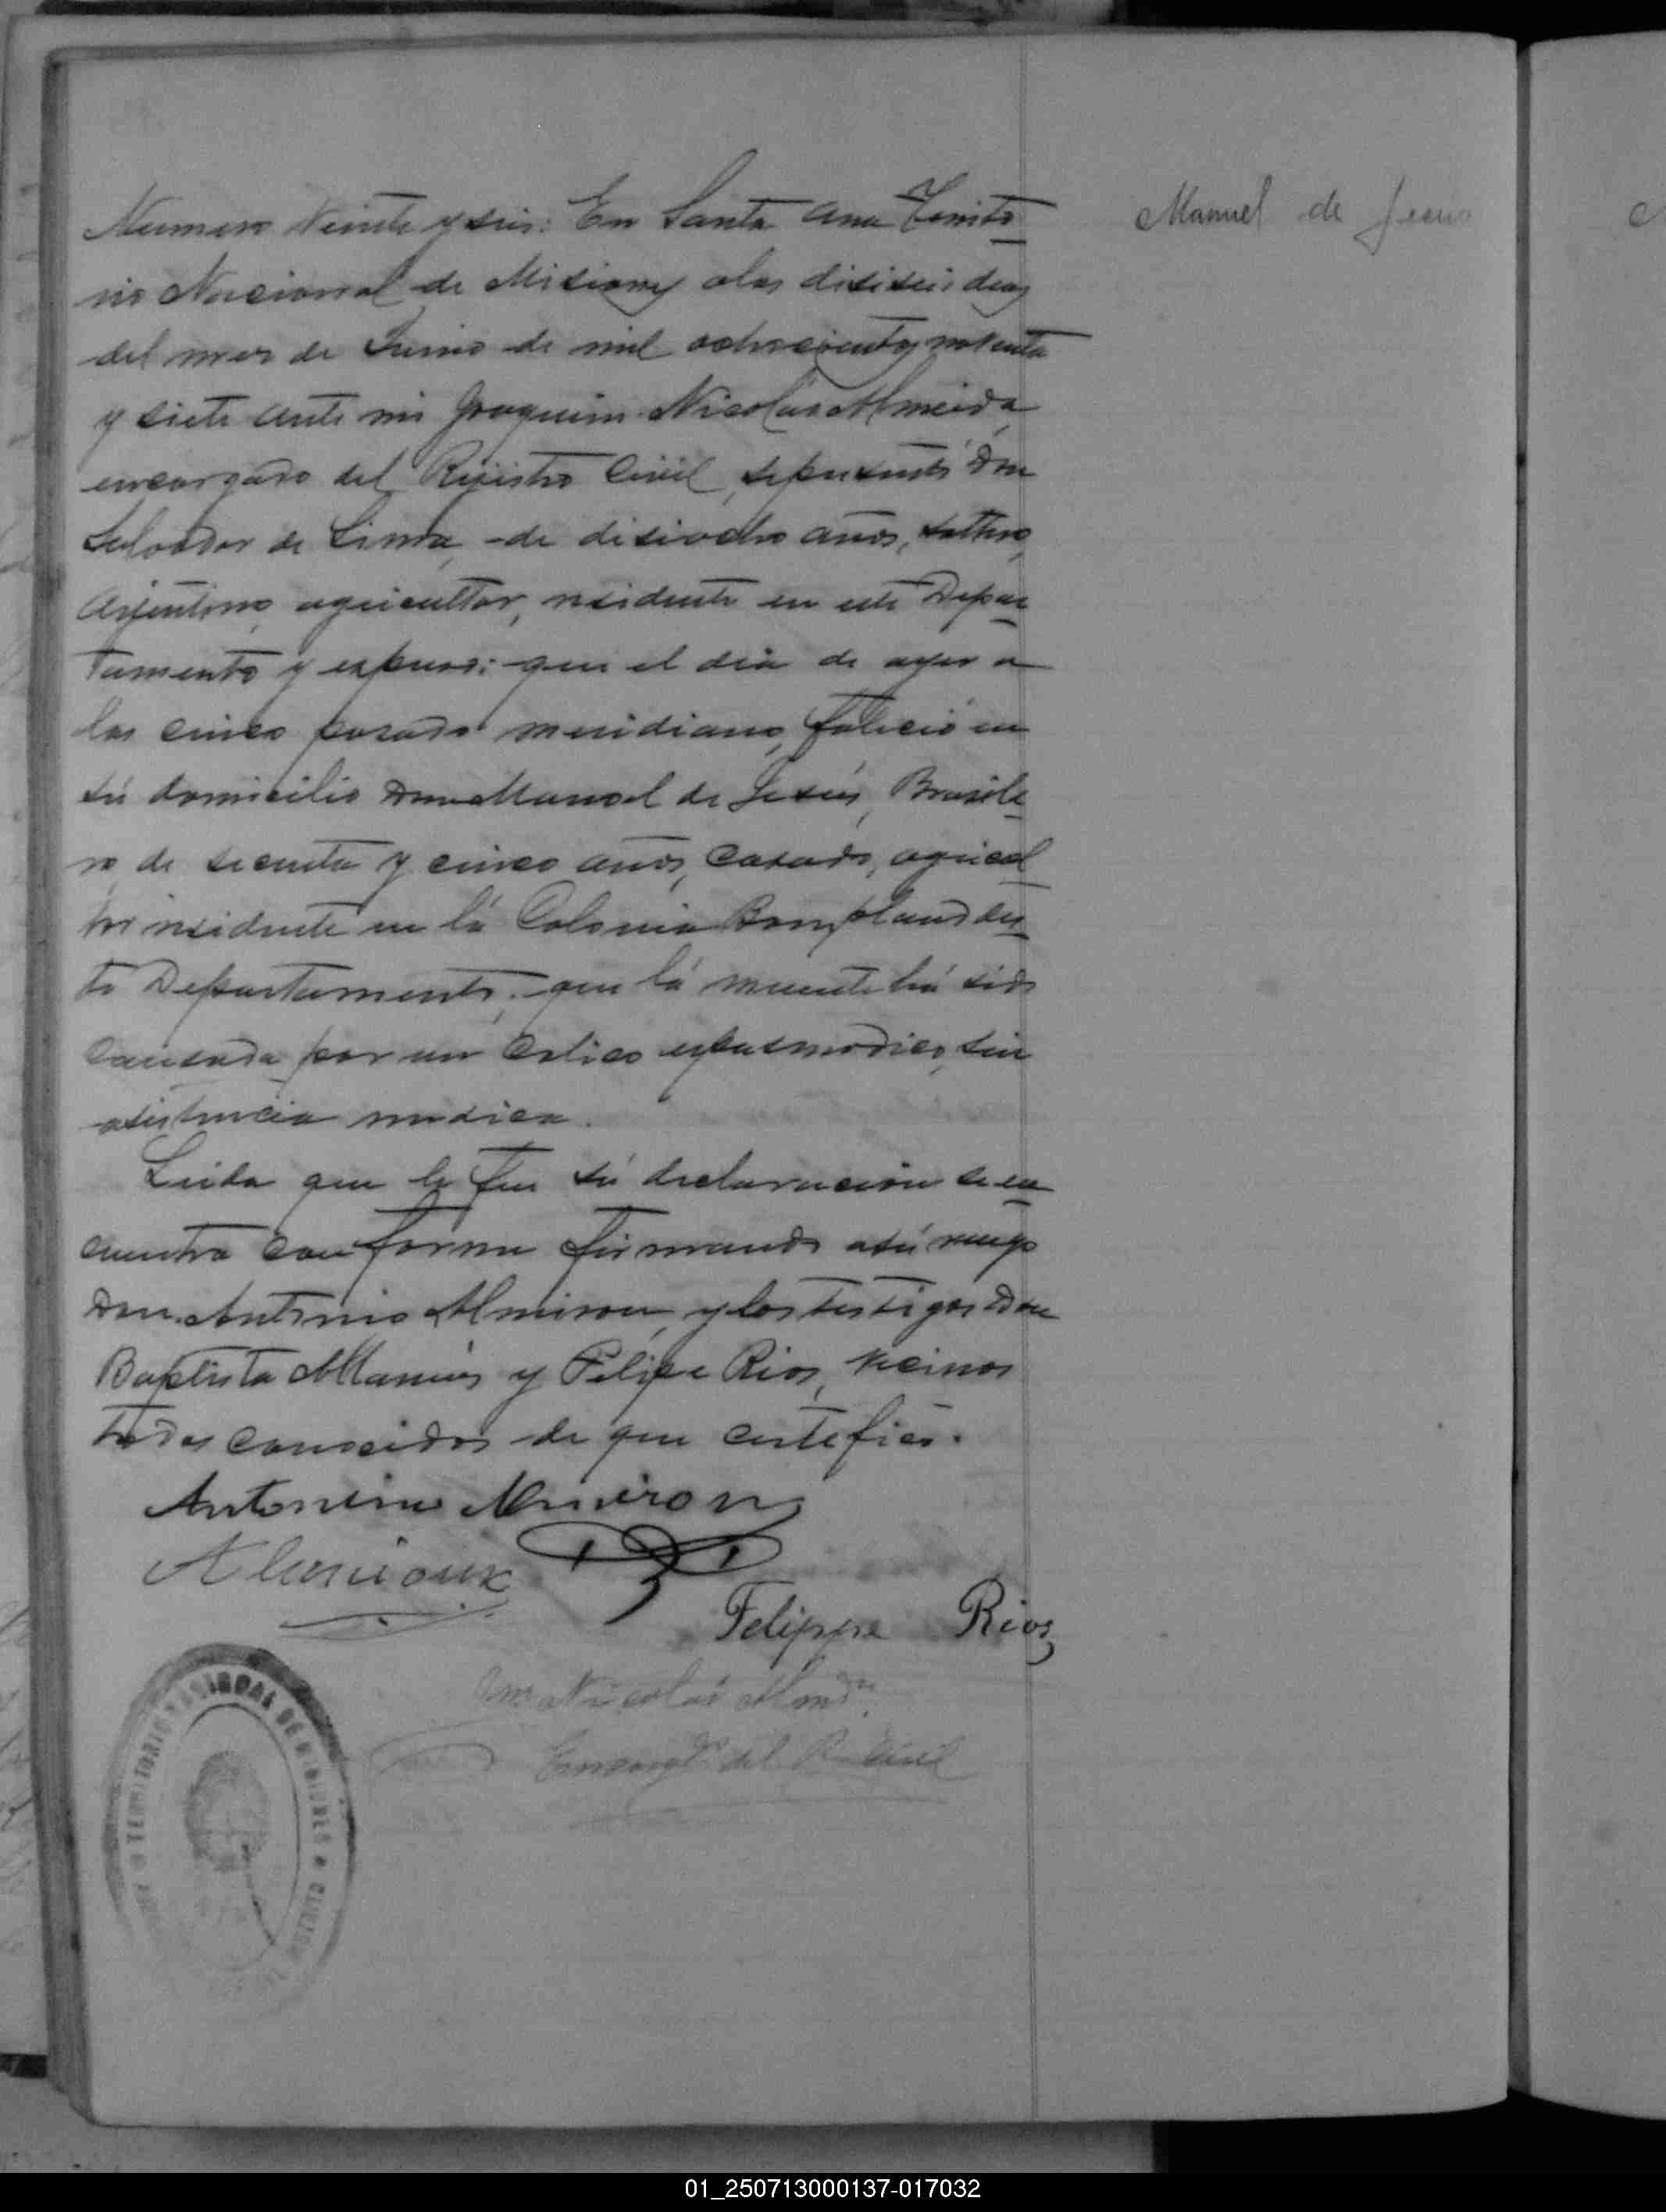 Numero Veinte y seis: En Santa Ana Territo
rio Nacional de Misiones alos disiseis dias
del mes de Junio de mil ochocientos noventa
y siete ante mi Joaquim Nicolás Almeida,
encargado del Rejistro Civil, se presentó Don
Salvador de Lima, de disiocho años, soltero,
Arjentino, agricultor, residente en este Depar
tamento y expuso: que el dia de ayer a
las cinco pasado meridiano, falició en
sú domicilio Don Manoel de Jesús, Brasile
ro de secenta y cinco años, casado, agricul
tor residente en lá Colonia Bompland des
te Departamento; que lá muerte há sido
causada por un Colico espasmodico, sin
asistencia medica.
Leida que le fue sú declaracion se en
cuentra conforme firmando asú ruego
Don Antonio Almiron, y los testigos Don
Baptista y Felipe Rios, vecinos
todos conocidos de que certefico.
Antonino Almiron
Felippe Rios
Nicolás Almda
Encargdo del R. Civil
Manuel de Jesus
TERRITORIO NACIONAL DE MISIONES
01_250713000137-017032